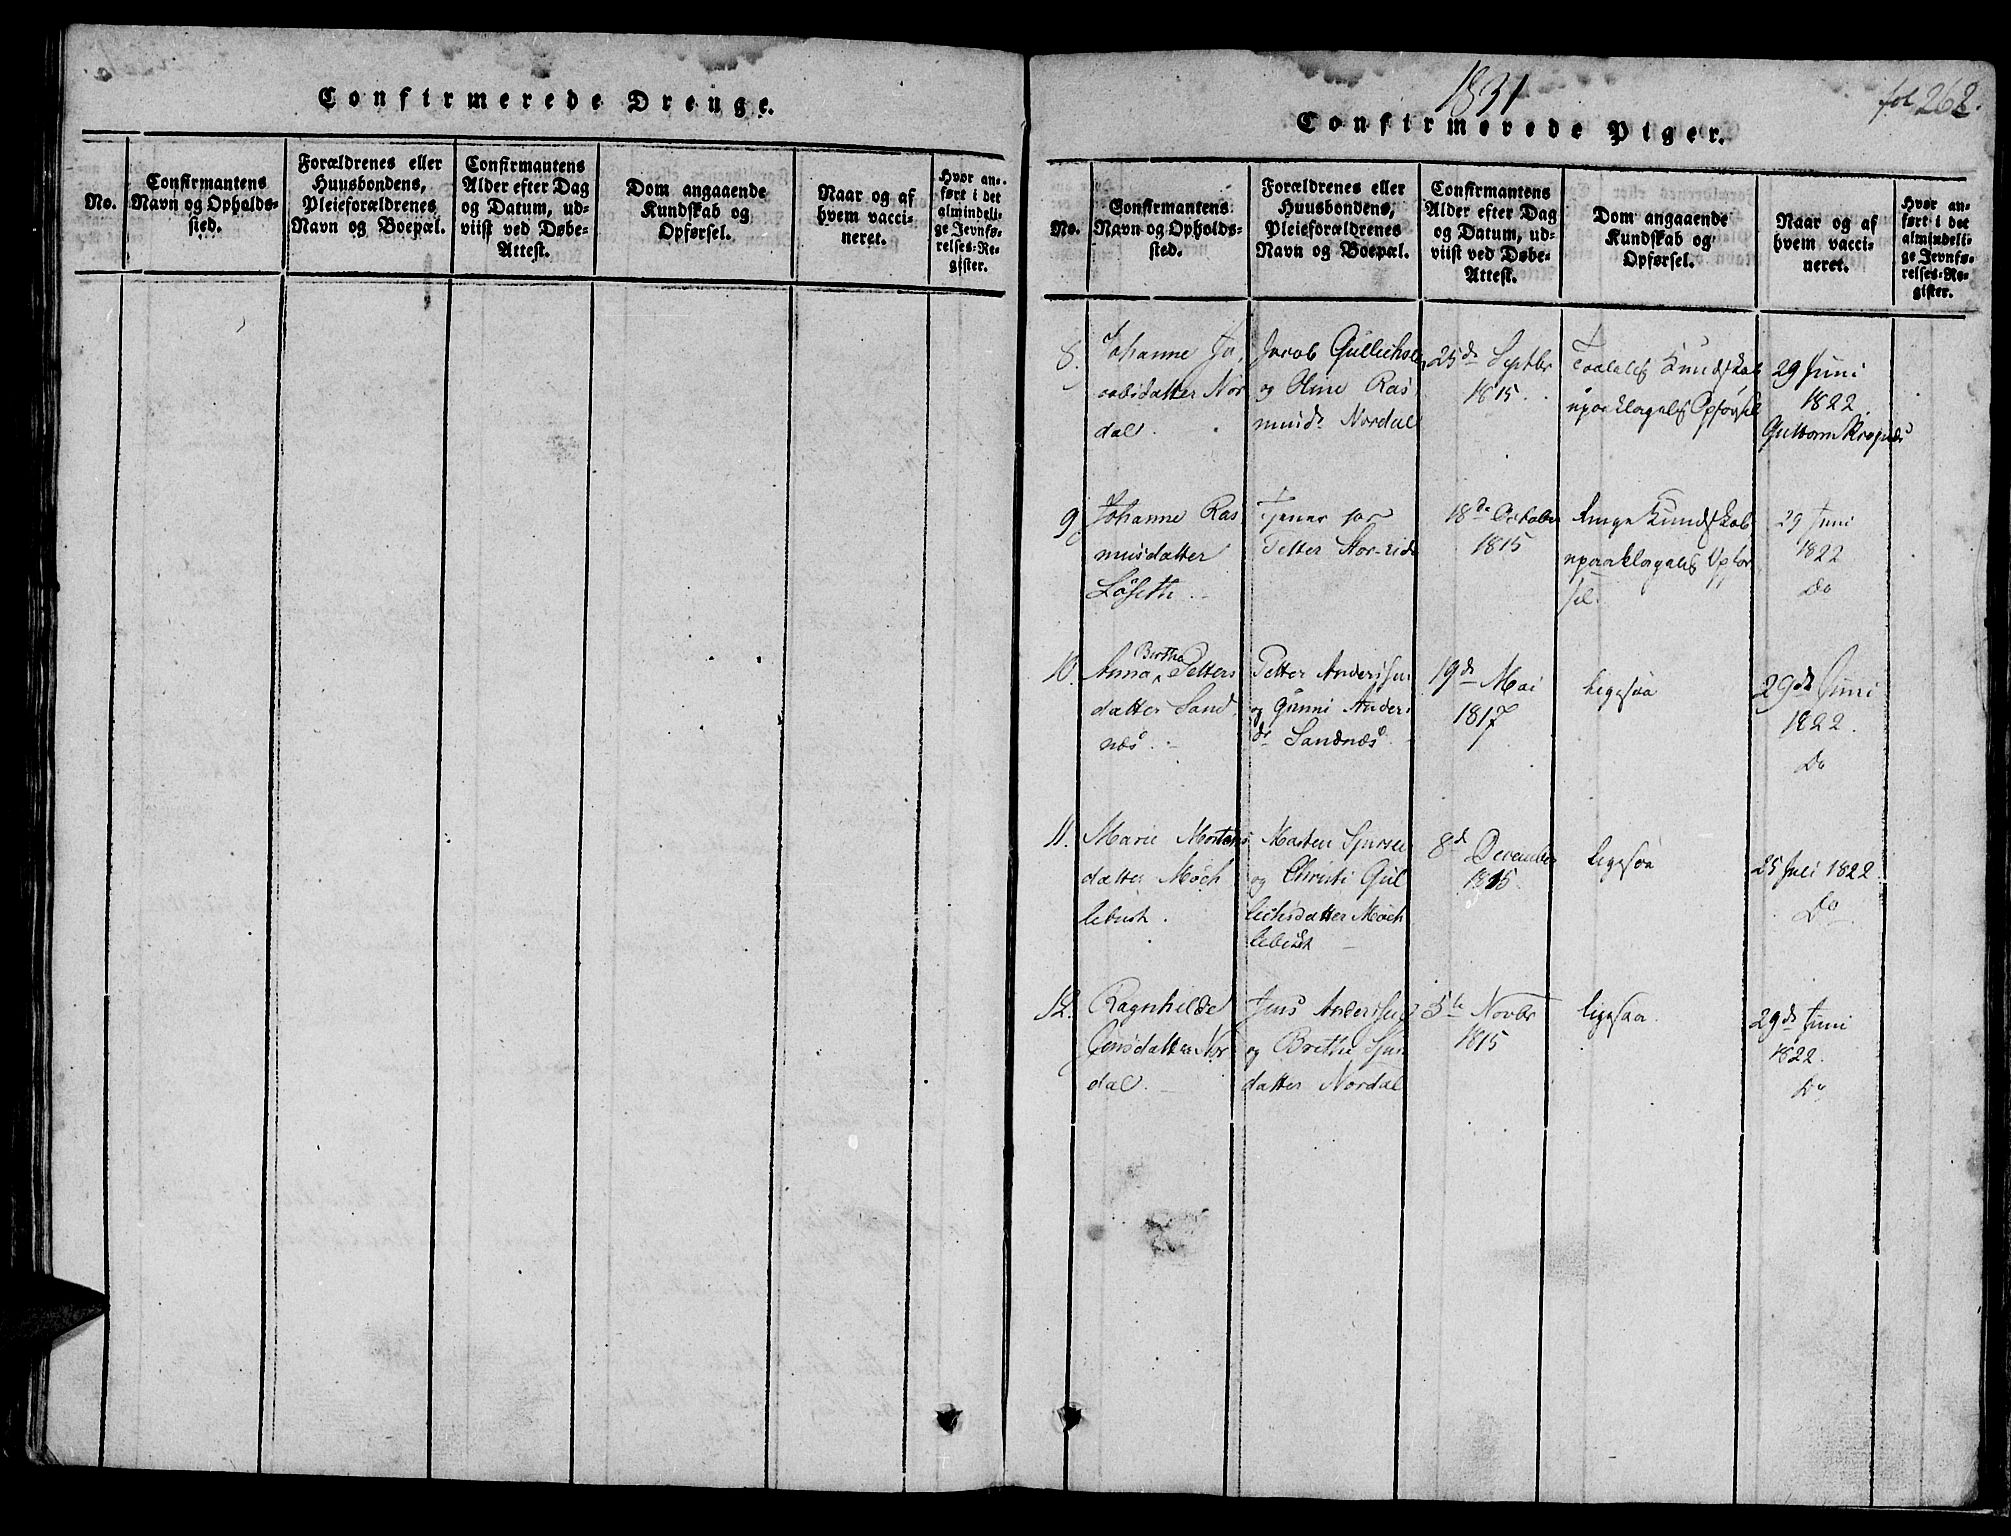 Confirmerede Drenge.
No.
Confirmantens
Navn og Opholds-
sted.
Forældrenes eller
Huusbondens,
Pleieforældrenes
Navn og Boepæl.
Confirmantens
Alder efter Dag
og Datum, ud-
viist ved Døbe-
Attest.
Dom angaaende
Kundskab og
Opførsel.
Naar og af
hvem vacci-
neret.
Hvor an-
ført i det
almindeli-
ge Jevnfø-
relses-Re-
gister.
1831
fol 262.
Confirmerede Piger.
No.
Confirmantens
Navn og Opholds-
sted.
Forældrenes eller
Huusbondens,
Pleieforældrenes
Navn og Boepæl.
Confirmantens
Alder efter Dag
og Datum, ud-
viist ved Døbe-
Attest.
Dom angaaende
Kundskab og
Opførsel.
Naar og af
hvem vacci-
neret.
Hvor an-
ført i det
almindeli-
ge Jevnfø-
relses-Re-
gister.
8.
Johanne Ja,
cobsdatter Nor
dal.
Jacob Gullichsen
og Oline Ras
munds Nordal
25de Septbr
1815.
Kundskab
29 Juni
1822.
Guttorm
9.
Johanne Ras
musdatter
Løseth.
Tjener for
Petter
18de October
1815
Ringe Kundskab
upaaklagelig Opfør
sel.
29 Juni
1822
Do
10.
Anna Bertha Petters
datter Sand
næs.
Petter Anderssen
og Gunni Anders
dr Sandnæs.
19de Mai
1817
ligesaa
29de Juni
1822.
Do
11.
Marie Mortens
datter Moch
lebust.
Morten
og Christi Gul
lichsdatter Moch
lebust
8de December
1815.
ligesaa
25 Juli 1822.
Do
12.
Ragnhilde
Jensdatter Nor
dal.
Jens Anderssen
og Brethe
datter Nordal
5te Novbr
1815
ligesaa.
29de Juni
1822.
Do